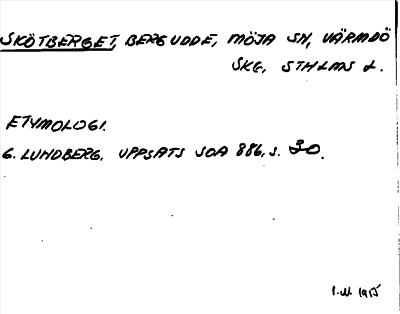 SKÖTBERGET, BERGUDDE, MÖJA SN, VÄRMDÖ
SKG, STHLMS L.
ETYMOLOGI.
G. LUNDBERG, UPPSATS SOA 886, s. 30.